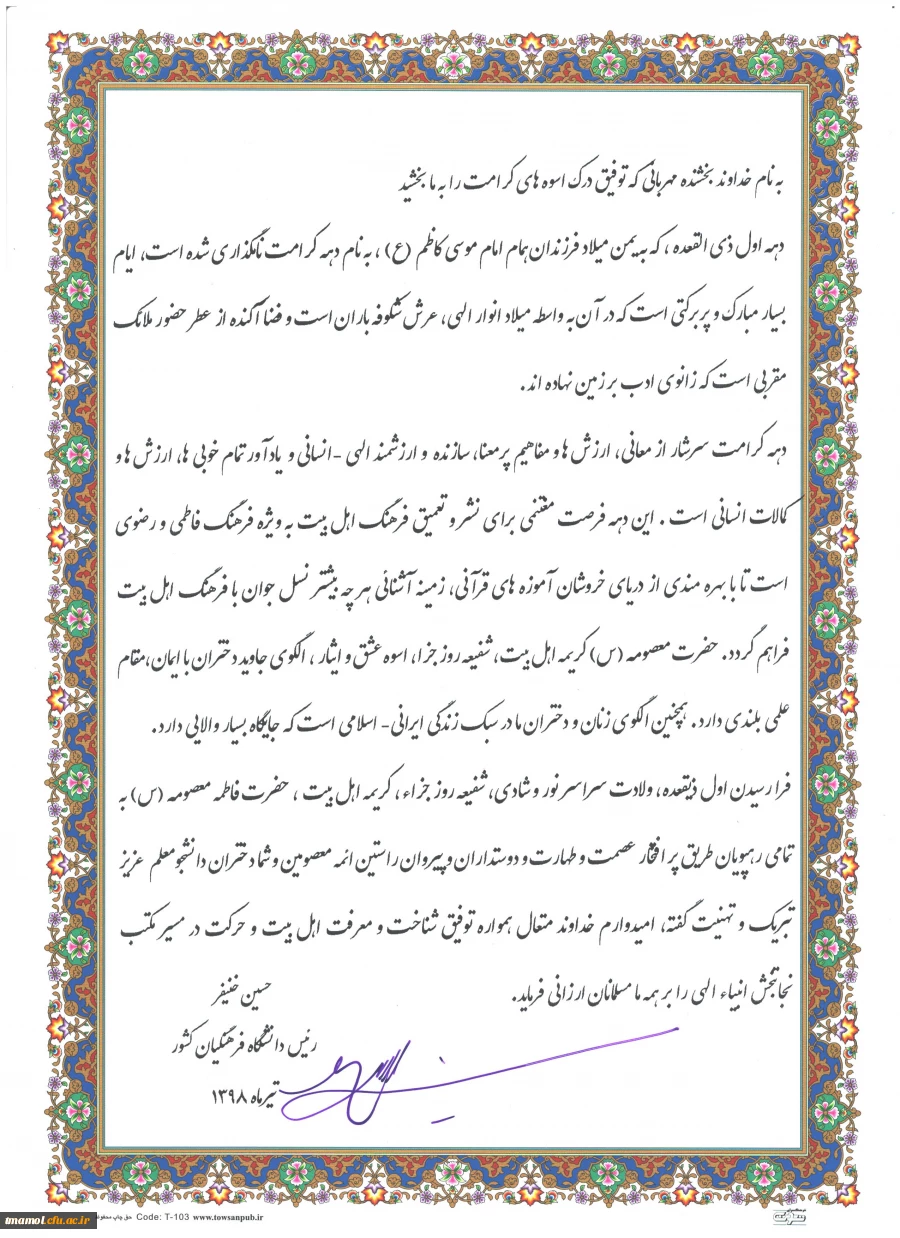 به نام خداوند بخشنده مهربانی که توفیق درک اسوه های کرامت را به ما بخشید
دهه اول ذی القعده ، که به یمن میلاد فرزندان همام امام موسی کاظم (ع) ، به نام دهه کرامت نامگذاری شده است، ایام
بسیار مبارک و پربرکتی است که در آن به واسطه میلاد انوار الهی، عرش شکوفه باران است و فضا آکنده از عطر حضور ملائک
مقربی است که زانوی ادب بر زمین نهاده اند .
دهه کرامت سرشار از معانی، ارزش ها و مفاهیم پرمعنا، سازنده و ارزشمند الهی -انسانی و یادآور تمام خوبی ها، ارزش ها و
کمالات انسانی است . این دهه فرصت مغتنمی برای نشر و تعمیق فرهنگ اهل بیت به ویژه فرهنگ فاطمی و رضوی
است تا با بهره مندی از دریای خروشان آموزه های قرآنی، زمینه آشنائی هر چه بیشتر نسل جوان با فرهنگ اهل بیت
فراهم گردد. حضرت معصومه (س) کریمه اهل بیت، شفیعه روز جزا، اسوه عشق و ایثار ، الگوی جاوید دختران با ایمان،مقام
علمی بلندی دارد. همچنین الگوی زنان و دختران ما در سبک زندگی ایرانی- اسلامی است که جایگاه بسیار والایی دارد.
فرا رسیدن اول ذیقعده، ولادت سراسر نور و شادی، شفیعه روز جزاء ، کریمه اهل بیت ، حضرت فاطمه معصومه (س) به
تمامی رهپویان طریق پر افتخار عصمت و طهارت و دوستداران و پیروان راستین ائمه معصومین و شما دختران دانشجومعلم عزیز
تبریک و تهنیت گفته، امیدوارم خداوند متعال همواره توفیق شناخت و معرفت اهل بیت و حرکت در مسیر مکتب
نجاتبخش انبیاء الهی را بر همه ما مسلمانان ارزانی فرماید.
حسین خنیفر
رئیس دانشگاه فرهنگیان کشور
تیرماه ۱۳۹۸
tmamol.cfu.ac.ir
حق چاپ محفوظ Code: T-103 www.towsanpub.ir